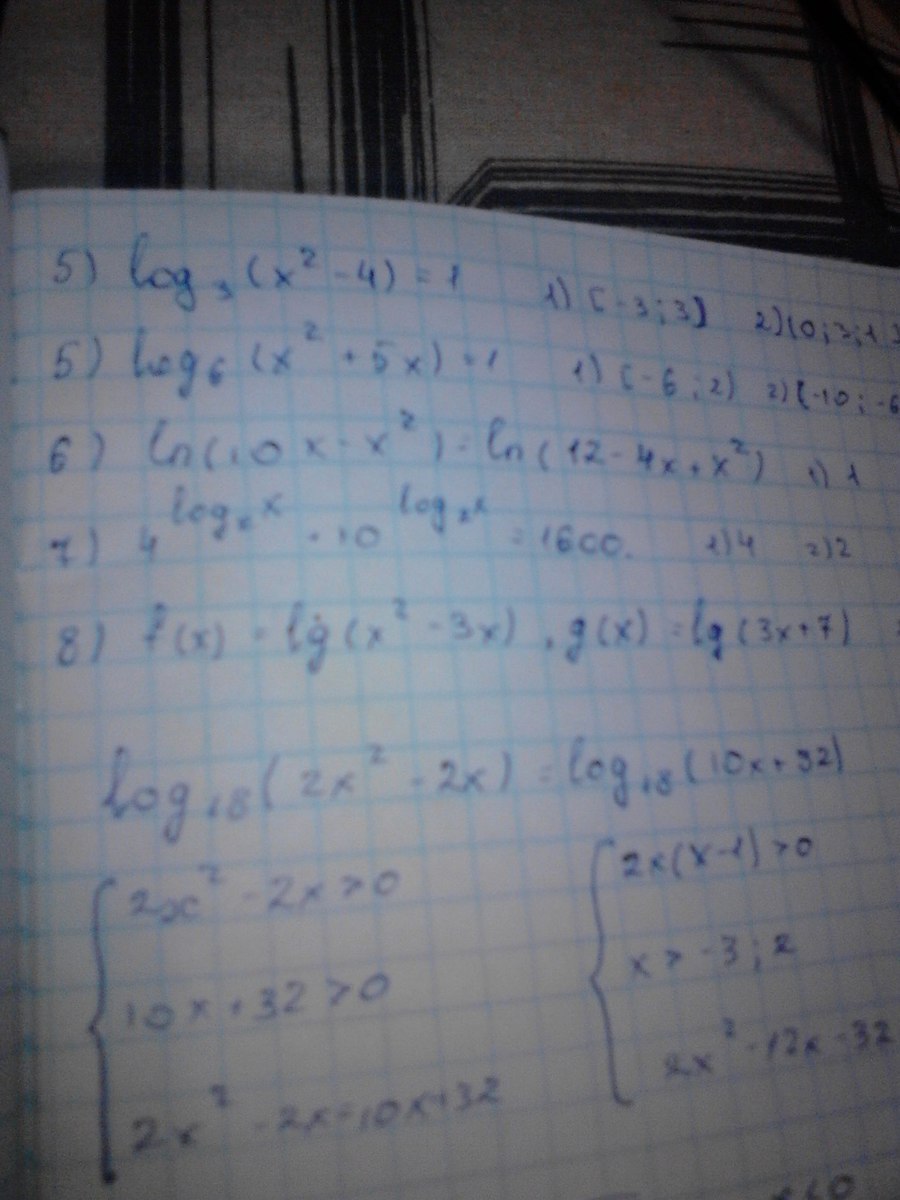 5) log₃(x² - 4) = 1 1) [-3; 3] 2) (0; 3,1
5) log₆(x² + 5x) = 1 1) (-6; 2) 2) (-10; -6
6) ln(10x - x²) = ln(12 - 4x + x²) 1) 1
7) 4^(log₂x) · 10^(log₂x) = 1600. 1) 4 2) 2
8) f(x) = lg(x² - 3x), g(x) = lg(3x + 7)
log₁₈(2x² - 2x) = log₁₈(10x + 32)
2x² - 2x > 0 2x(x - 1) > 0
10x + 32 > 0 x > -3; 2
2x² - 2x = 10x + 32 2x² - 12x - 32